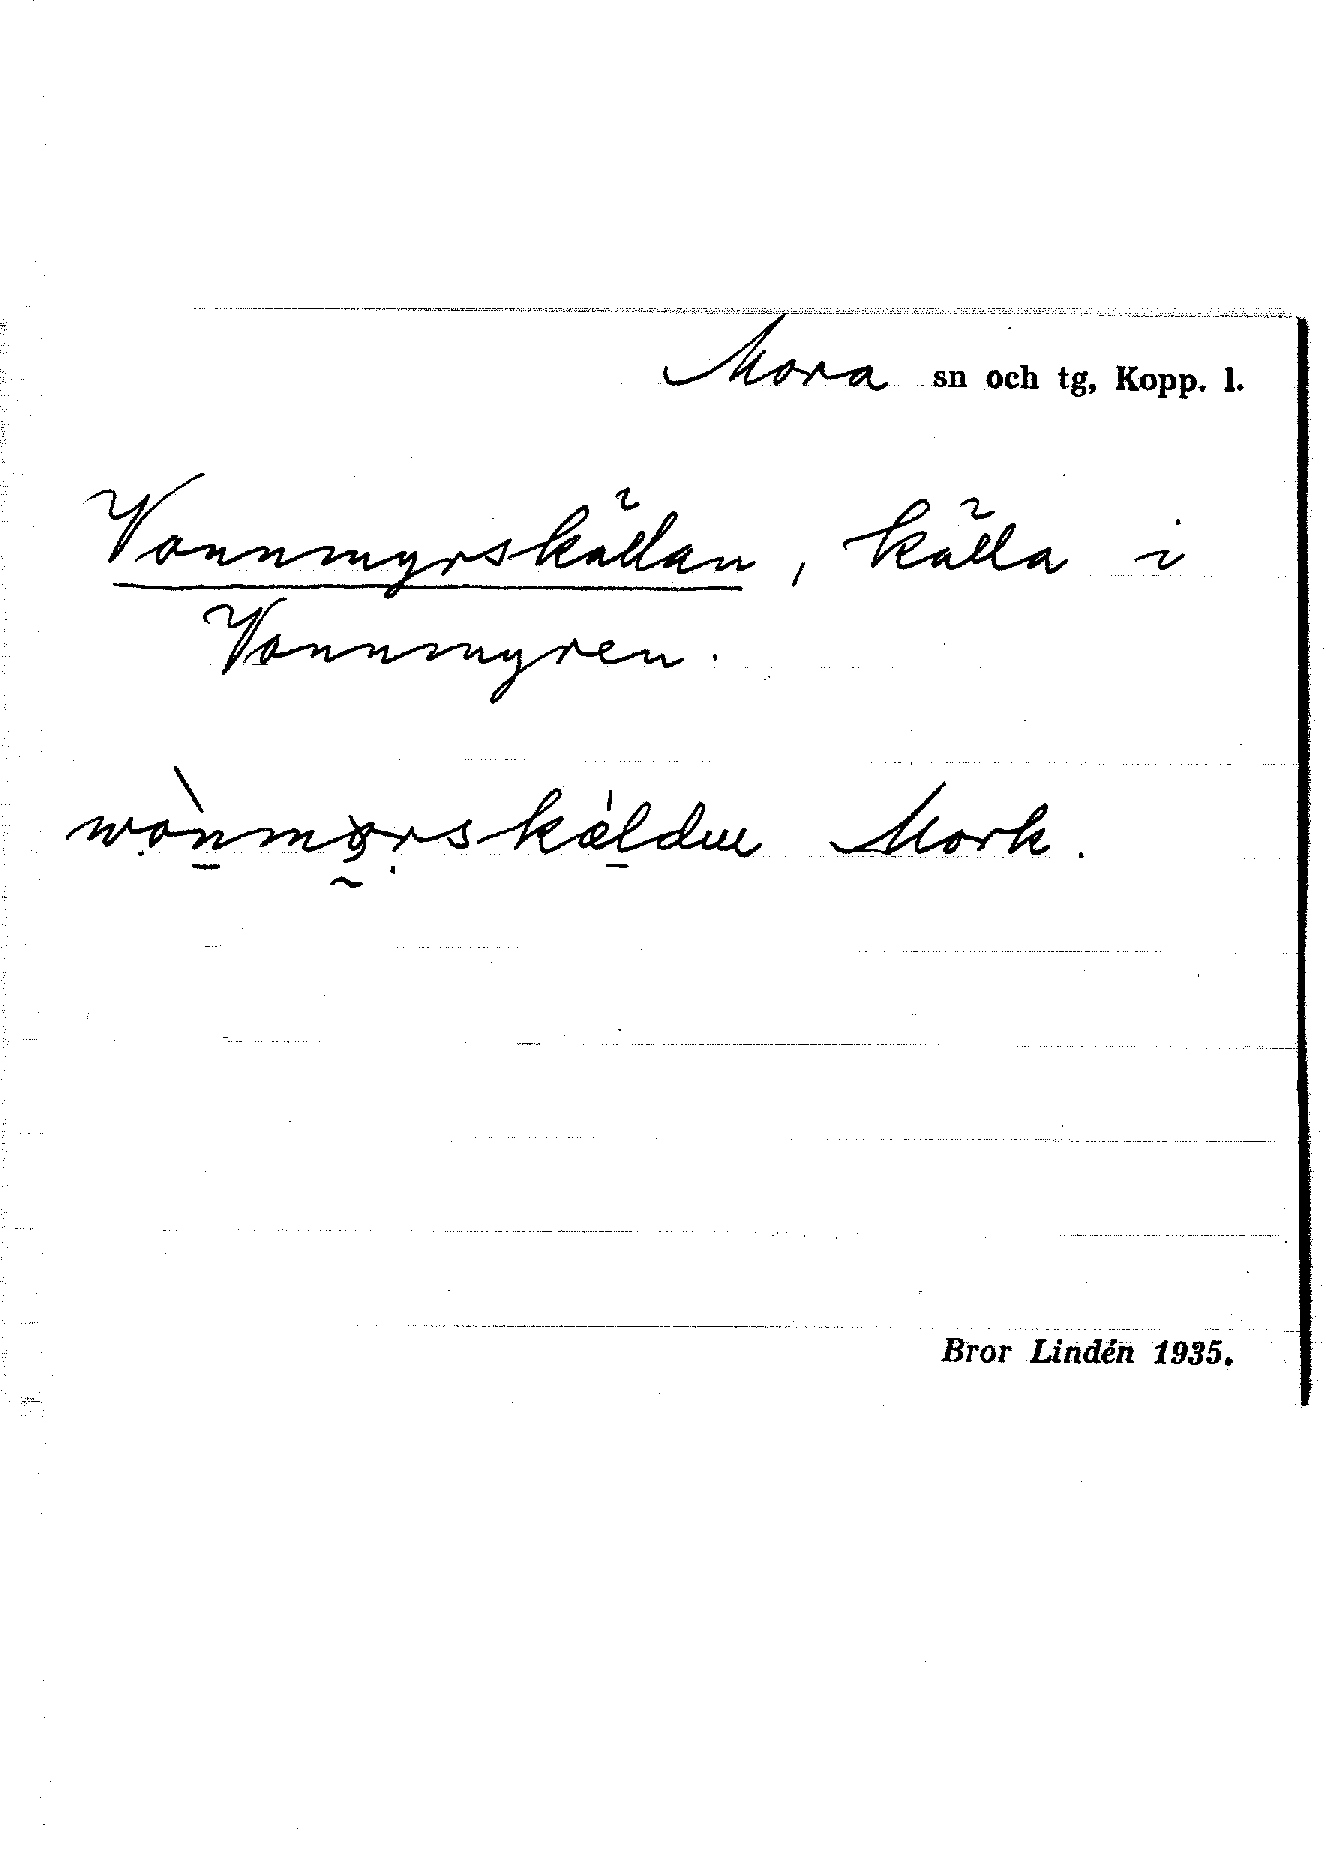 Mora sn och tg, Kopp. l.
Vonnmyrskällan, källa i
Vonnmyren.
Mork.
Bror Lindén 1935.